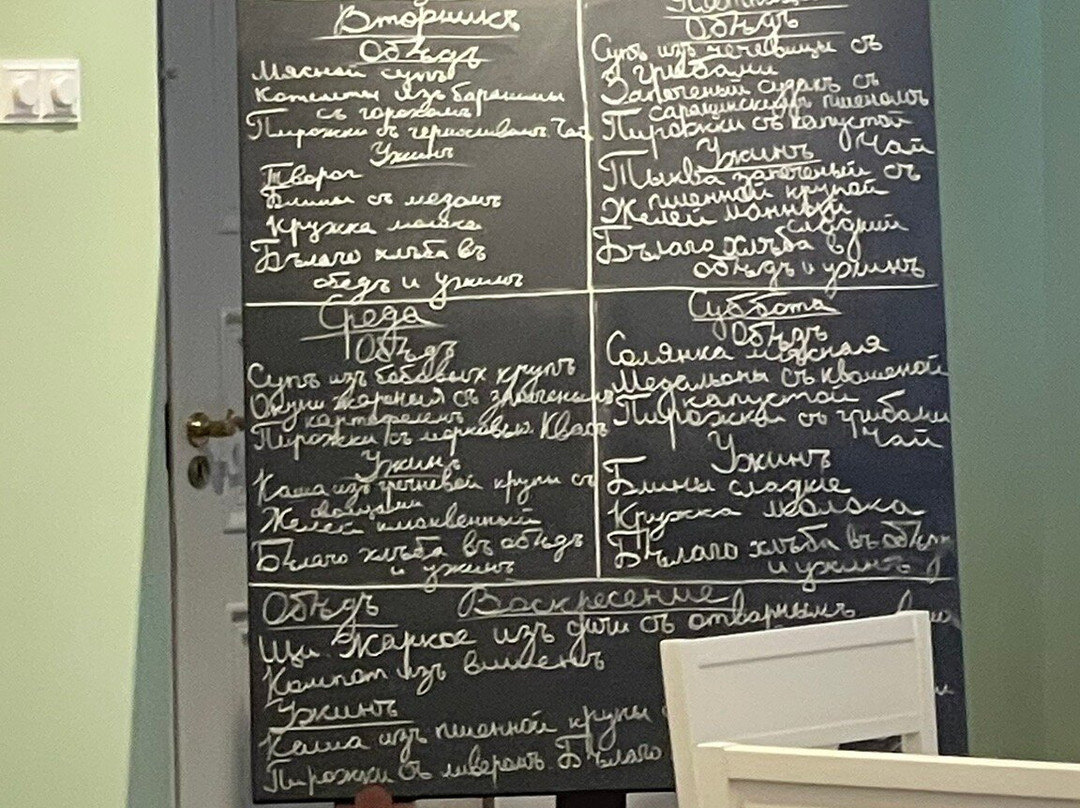 Вторникъ
Обѣдъ
Мясной супъ
Котелты изъ баранины
съ горохомъ
Пирожки съ черносливомъ. Чай
Ужинъ
Творог
Блины съ медомъ
Кружка молока
Бѣлаго хлѣба въ
обедъ и ужинъ
Обѣдъ
Супъ изъ чечевицы съ
грибами
Започеный судакъ съ
сарацинскимъ пшеномъ
Пирожки съ капустой
Чай
Ужинъ
Тыква започеный съ
пшенной крупой
Желей
сладкий
Бѣлаго хлѣба в
обѣдъ и ужинъ
Среда
Обѣдъ
Супъ изъ бобовых крупъ
Окуни жареным съ
картофелемъ
Пирожки съ морковью. Квасъ
Ужинъ
Каша изъ гречневой крупы съ
овощами
Желей клюквенный
Бѣлаго хлѣба въ обѣдъ
и ужинъ
Суббота
Обѣдъ
Солянка мясная
Медальоны съ квашеной
капустой
Пирожки съ грибами
Чай
Ужинъ
Блины сладкіе
Кружка молока
Бѣлаго хлѣба въ
и ужинъ
Воскресение
Обѣдъ
Щи. Жаркое изъ дичи съ отварнымъ
Компот изъ вишенъ
Ужинъ
Каша изъ пшенной крупы
Пирожки съ ливеромъ. Бѣлаго